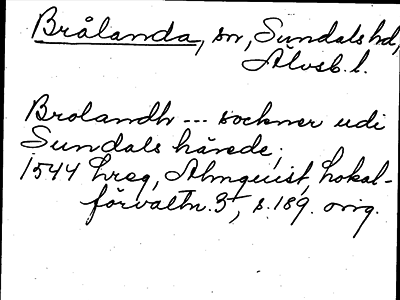 Brålanda, sn, Sundals hd,
Älvsb. l.
Brolandh --- sockner udi
Sundals härede;
1544 Lreg, Almquist, Lokal-
förvaltn. 3, s. 189. orig.